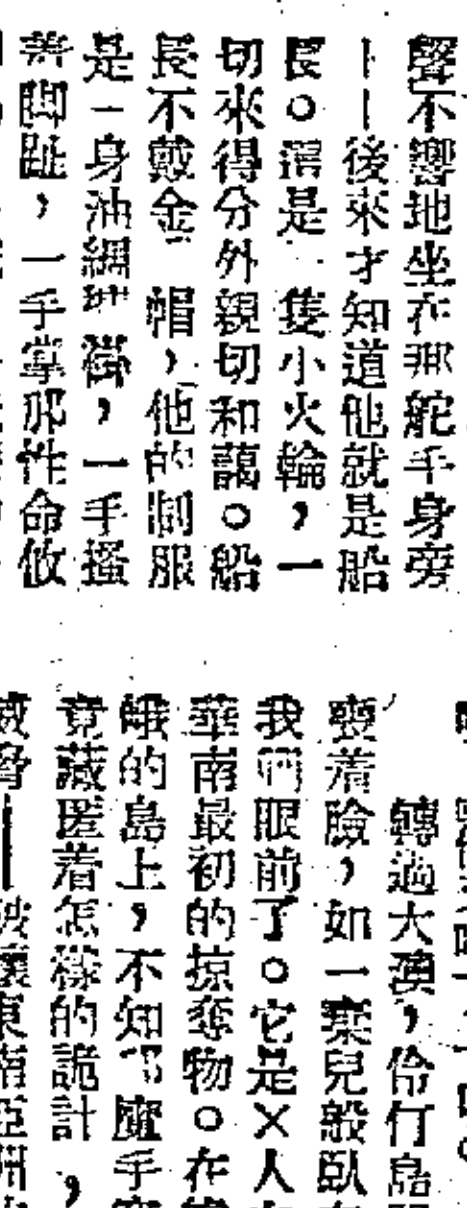 聲不響地坐在那舵手身旁
——後來才知道他就是船
長。這是一隻小火輪,一
切來得分外親切和藹。船
長不戴金 帽,他的制服
是一身油綢 褂,一手搔
着脚趾,一手掌那性命攸
轉過大澳,伶仃島
喪着臉,如一棄兒般臥
我們眼前了。它是×人
華南最初的掠奪物。在
峨的島上,不知 魔手
竟藏匿着怎樣的詭計,
威脅——破壞東南亞洲